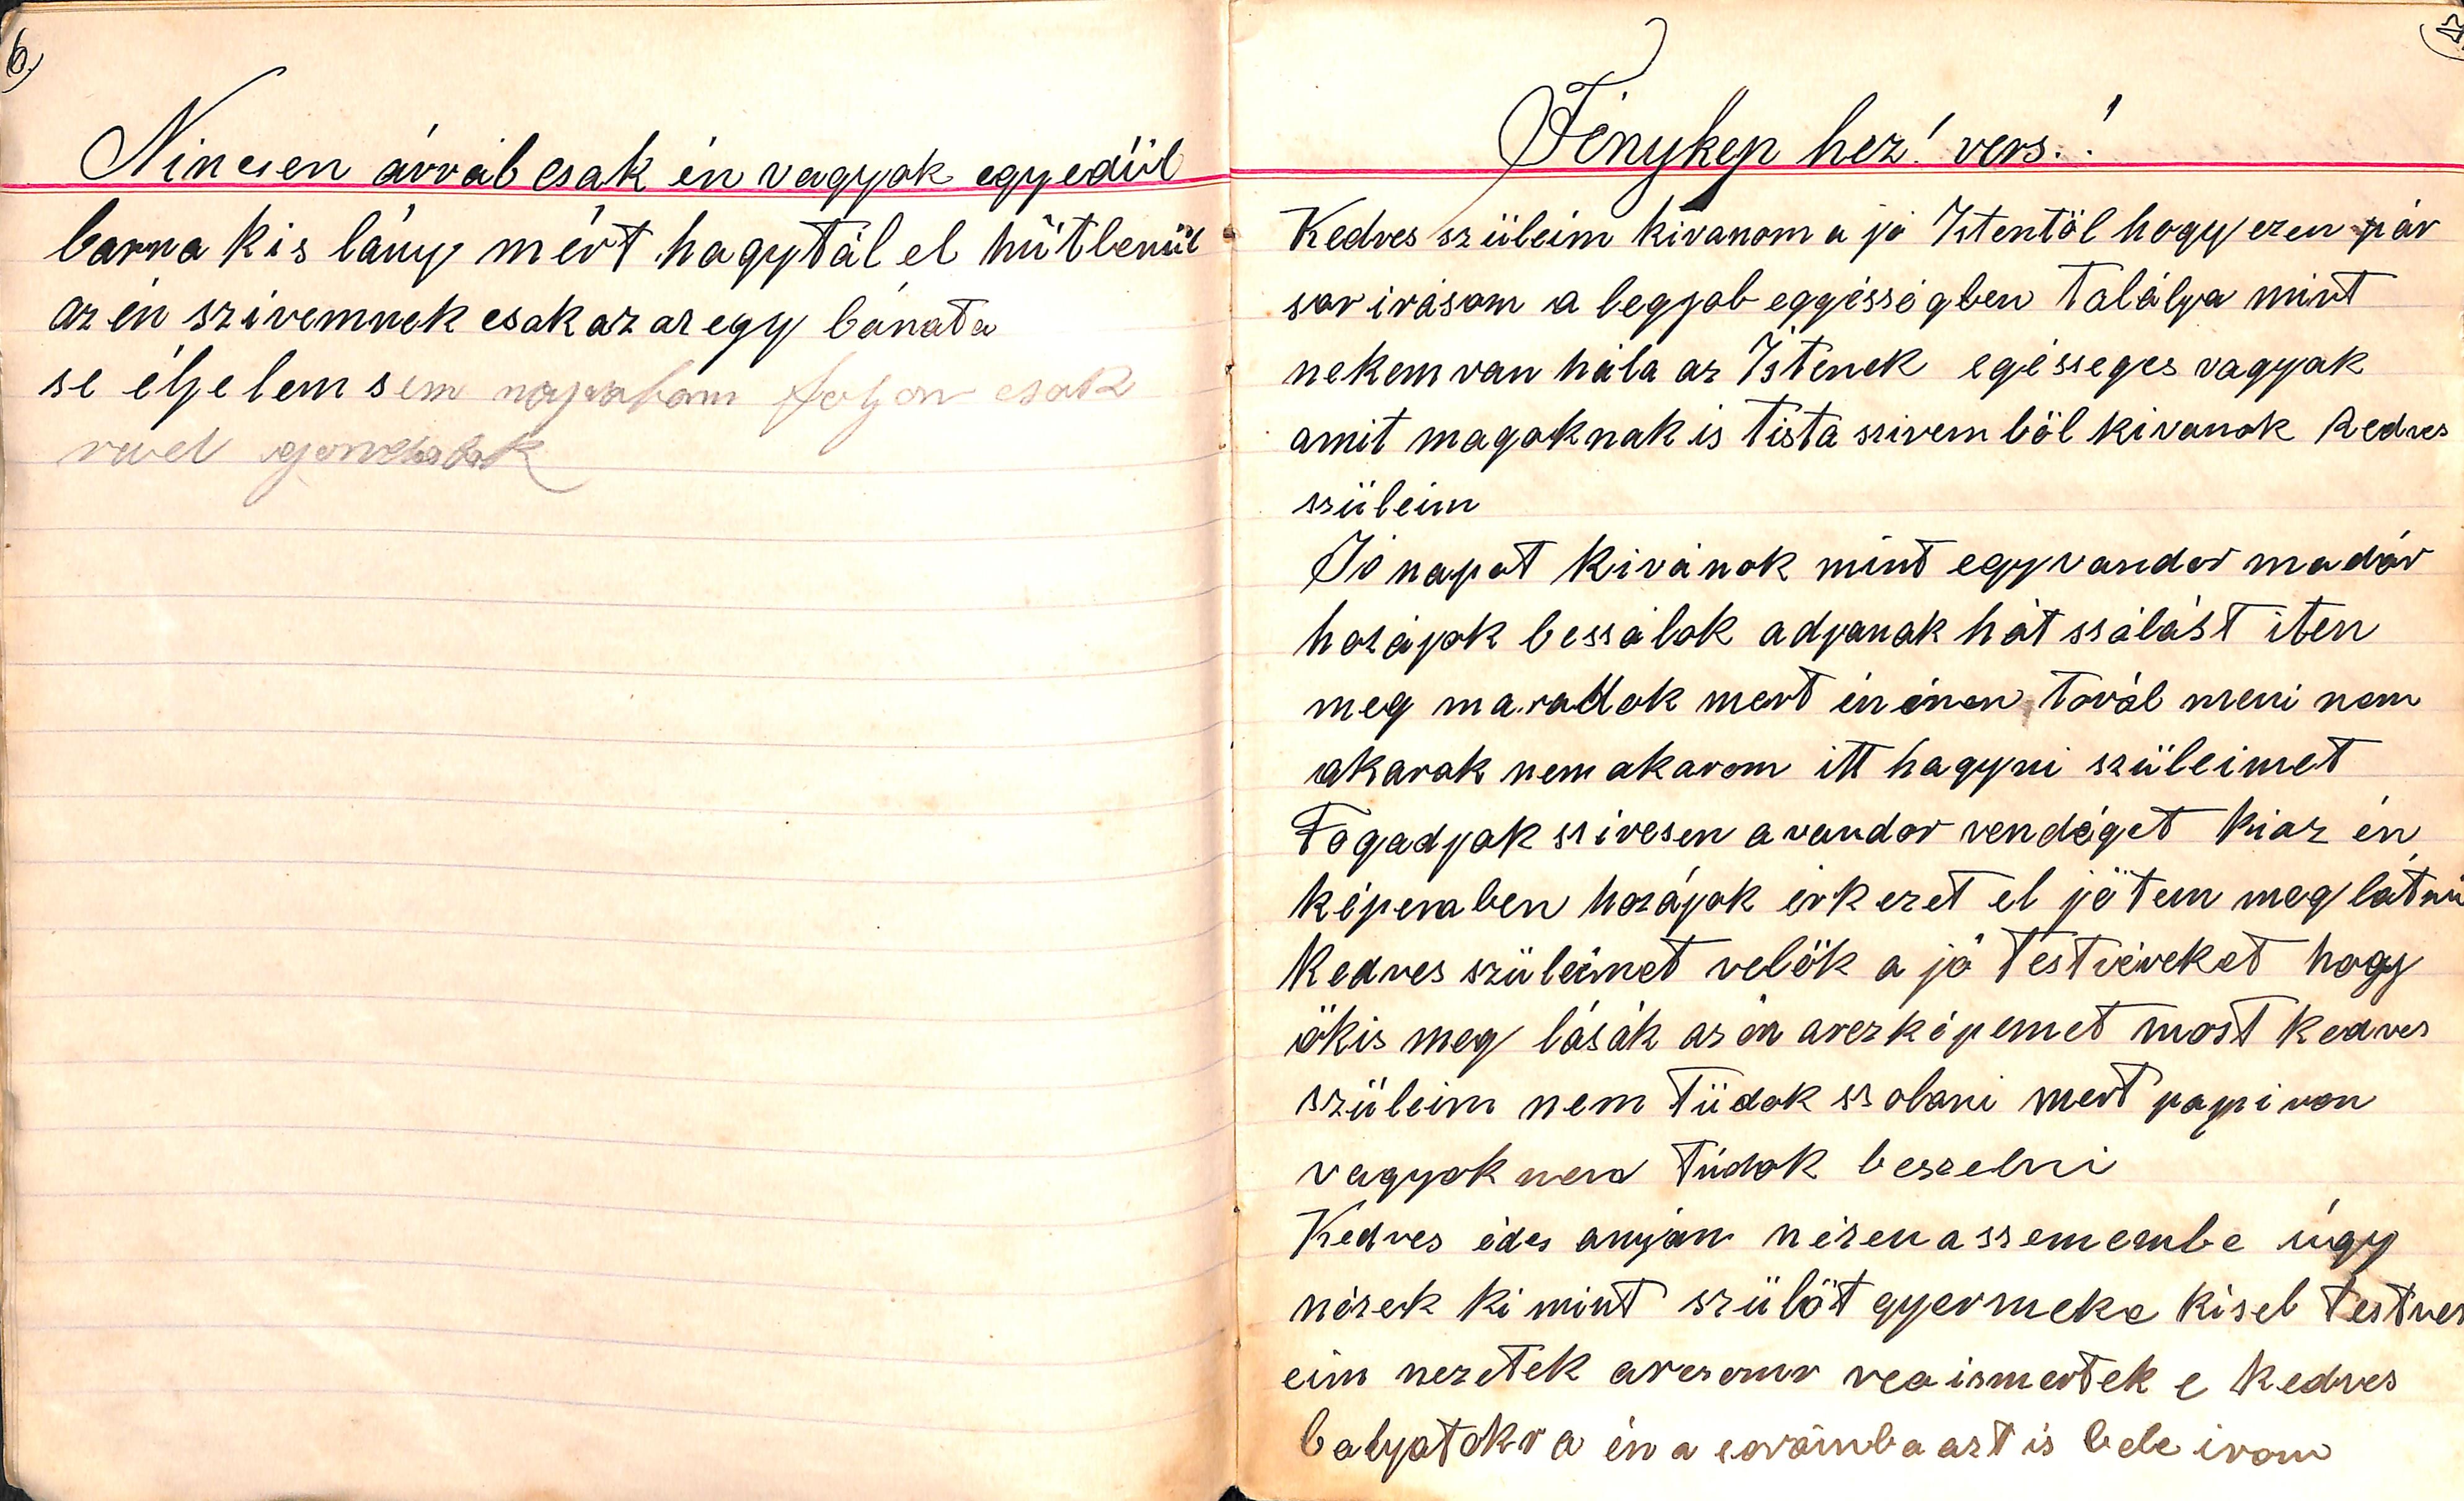 6)
Nincsen árváb csak én vagyok egyedül
barna kis lány mért hagytál el hűtlenül
az én szivemnek csak az az egy bánata
se éljelem sem napalom foljon csak
rúd gondolok
Fénykep hez! vers.!
Kedves szüleim kivanom a jó Istentöl hogy ezen pár
sor irásom a legjob eggésségben talályа mint
nekem van hála az Istenek egésseges vagyok
amit magoknak is tista szivem böl kivanok kedves
szüleim
Jó napot kivánok mint egy vandor madár
hozájok bessálok adjanak hát ssálást iten
meg maradok mert én énen továb meni nem
akarok nem akarom itt hagyni szüleimet
Fogadjak ssivesen a vandor vendéget ki az én
képemben hozájok érkezet el jötem meg látni
kedves szüleimet velök a jó testvéreket hogy
ökis meg lásák az én arczképemet most kedves
szüleim nem tüdok ssolani mert papiron
vagyok nem tüdok beszelni
Kedves édes anyám nézen a ssemembe úgy
nézek ki mint szülöt gyermeke kisel testver
eim nezetek arczomr rea ismertek e kedves
batyatokra én a sorámba azt is bele irom